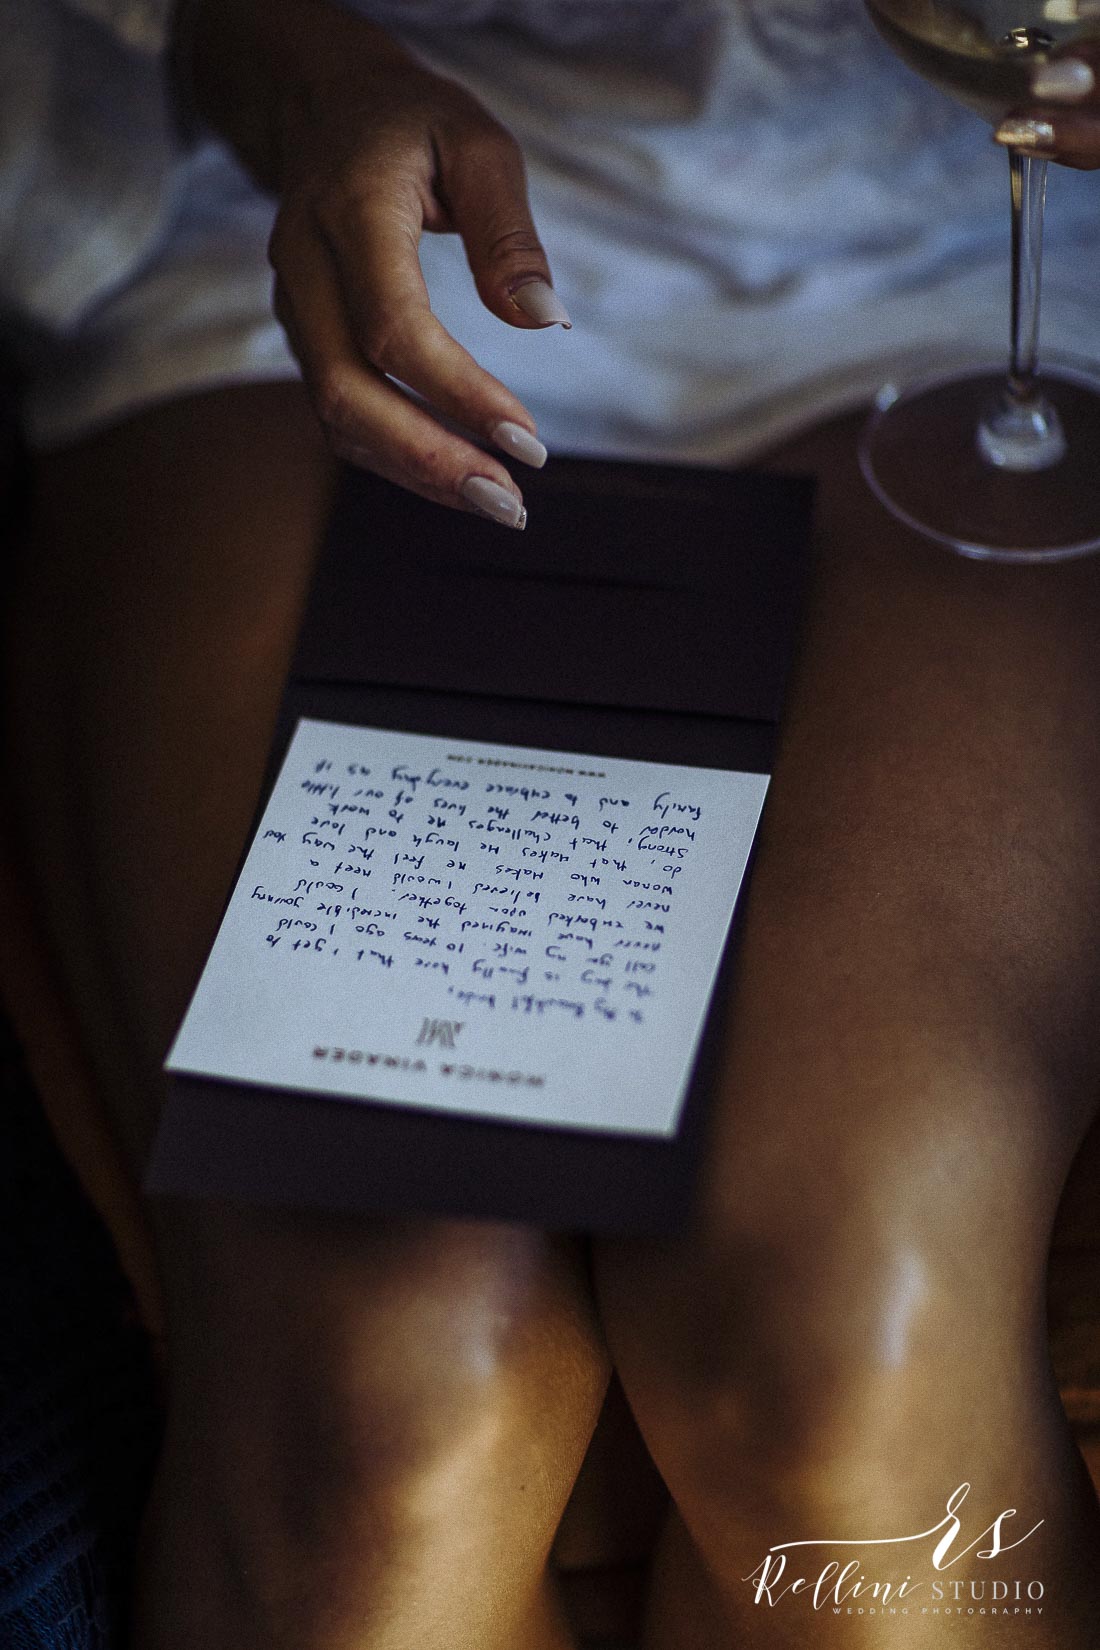 MONICA VINADER
To my beautiful bride,
The day is finally here that I get to
call you my wife. 10 years ago I could
never have imagined the incredible journey
we embarked upon together. I could
never have believed I would meet a
woman who makes me feel the way you
do, that makes me laugh and love
strong, that challenges me to work
harder to better the lives of our little
family and to embrace everyday as if
WWW.MONICAVINADER.COM
rs
Rellini STUDIO
WEDDING PHOTOGRAPHY